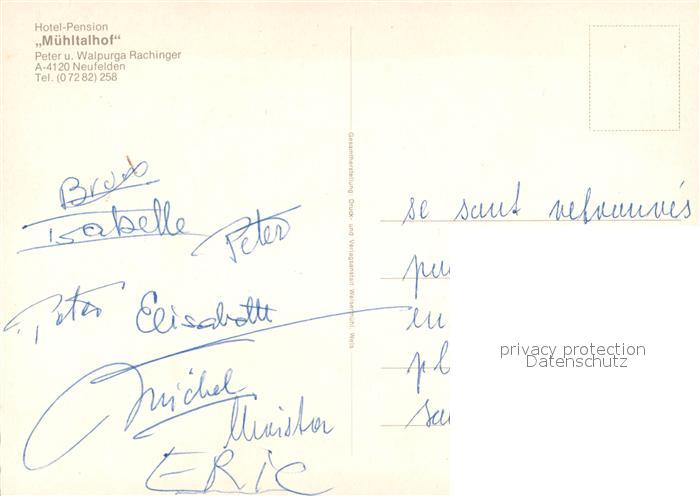 Hotel-Pension
„Mühltalhof“
Peter u. Walpurga Rachinger
A-4120 Neufelden
Tel. (0 72 82) 258
Gesamtherstellung Druck- und Verlagsanstalt Welsermühl, Wels
Bruno
Isabelle
Peter
Peter Elisabeth
Michel
ERIC
se sont retrouvés
en
privacy protection
Datenschutz